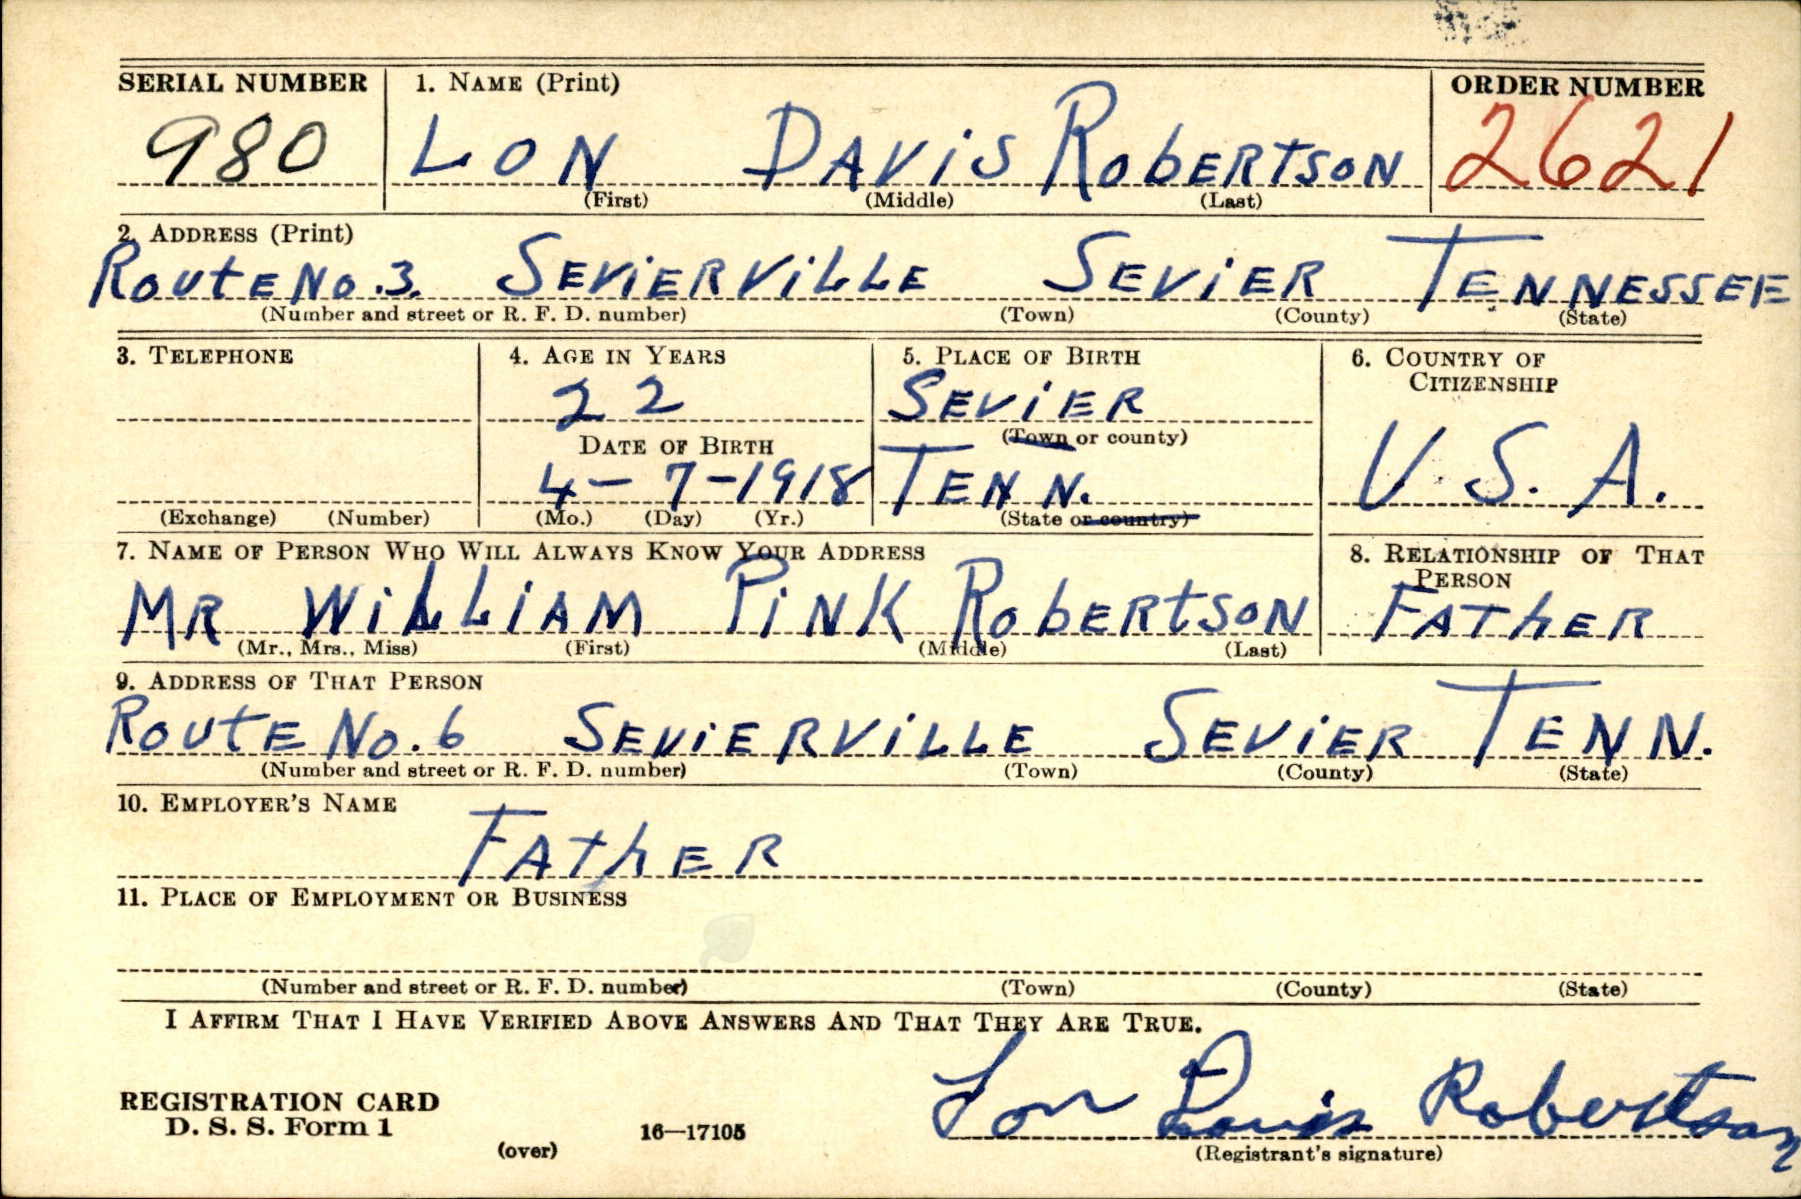 SERIAL NUMBER 1. NAME (Print) ORDER NUMBER
980 LON DAVIS ROBERTSON 2621
(First) (Middle) (Last)
2. ADDRESS (Print)
ROUTE NO. 3. SEVIERVILLE SEVIER TENNESSEE
(Number and street or R. F. D. number) (Town) (County) (State)
3. TELEPHONE 4. AGE IN YEARS 5. PLACE OF BIRTH 6. COUNTRY OF
CITIZENSHIP
22 SEVIER
(Town or county)
DATE OF BIRTH
4-7-1918 TENN. U. S. A.
(Exchange) (Number) (Mo.) (Day) (Yr.) (State or country)
7. NAME OF PERSON WHO WILL ALWAYS KNOW YOUR ADDRESS 8. RELATIONSHIP OF THAT
PERSON
MR WILLIAM PINK ROBERTSON FATHER
(Mr., Mrs., Miss) (First) (Middle) (Last)
9. ADDRESS OF THAT PERSON
ROUTE NO. 6 SEVIERVILLE SEVIER TENN.
(Number and street or R. F. D. number) (Town) (County) (State)
10. EMPLOYER'S NAME
FATHER
11. PLACE OF EMPLOYMENT OR BUSINESS
(Number and street or R. F. D. number) (Town) (County) (State)
I AFFIRM THAT I HAVE VERIFIED ABOVE ANSWERS AND THAT THEY ARE TRUE.
REGISTRATION CARD
D. S. S. Form 1
(over) 16—17105
Lon Davis Robertson
(Registrant's signature)